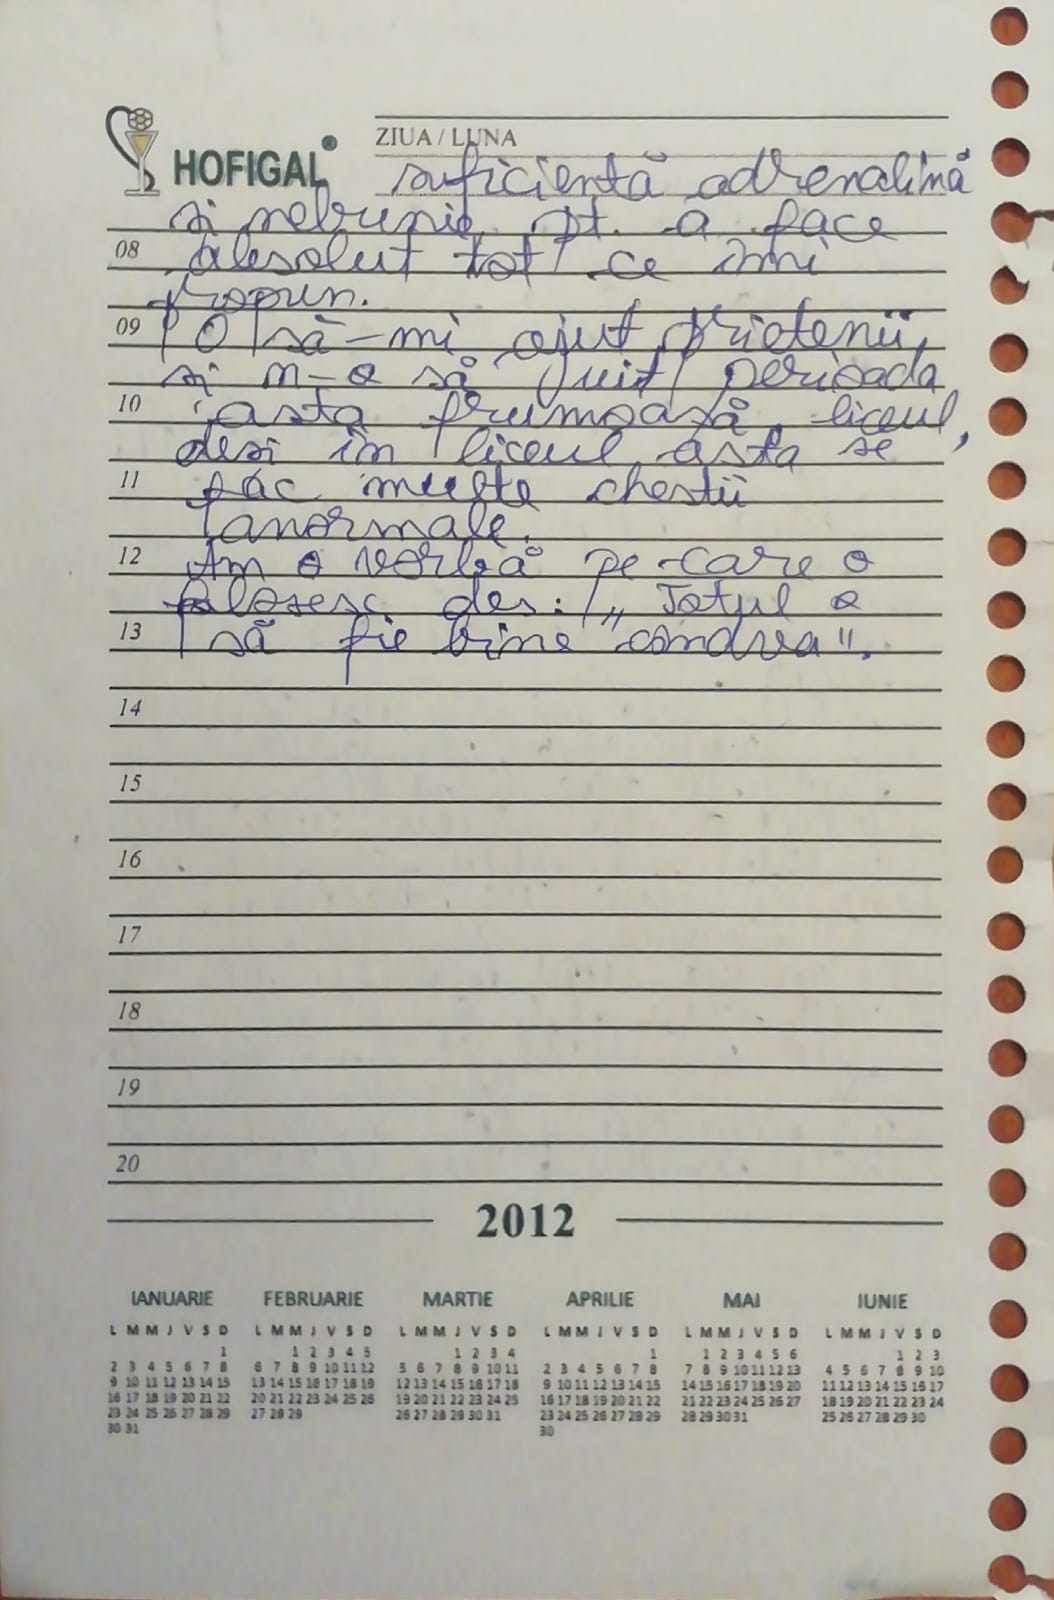 ZIUA / LUNA
HOFIGAL®
suficientă adrenalină
și nebunie pt. a face
08
absolut tot ce îmi
propun.
09
O să-mi ajut prietenii,
și n-o să uit perioada
10
asta frumoasă, liceul,
deși în liceul ăsta se
11
fac multe chestii
anormale.
12
Am o vorbă pe care o
folosesc des: „Totul o
13
să fie bine cândva".
14
15
16
17
18
19
20
2012
IANUARIE
L M M J V S D
1
2 3 4 5 6 7 8
9 10 11 12 13 14 15
16 17 18 19 20 21 22
23 24 25 26 27 28 29
30 31
FEBRUARIE
L M M J V S D
1 2 3 4 5
6 7 8 9 10 11 12
13 14 15 16 17 18 19
20 21 22 23 24 25 26
27 28 29
MARTIE
L M M J V S D
1 2 3 4
5 6 7 8 9 10 11
12 13 14 15 16 17 18
19 20 21 22 23 24 25
26 27 28 29 30 31
APRILIE
L M M J V S D
1
2 3 4 5 6 7 8
9 10 11 12 13 14 15
16 17 18 19 20 21 22
23 24 25 26 27 28 29
30
MAI
L M M J V S D
1 2 3 4 5 6
7 8 9 10 11 12 13
14 15 16 17 18 19 20
21 22 23 24 25 26 27
28 29 30 31
IUNIE
L M M J V S D
1 2 3
4 5 6 7 8 9 10
11 12 13 14 15 16 17
18 19 20 21 22 23 24
25 26 27 28 29 30